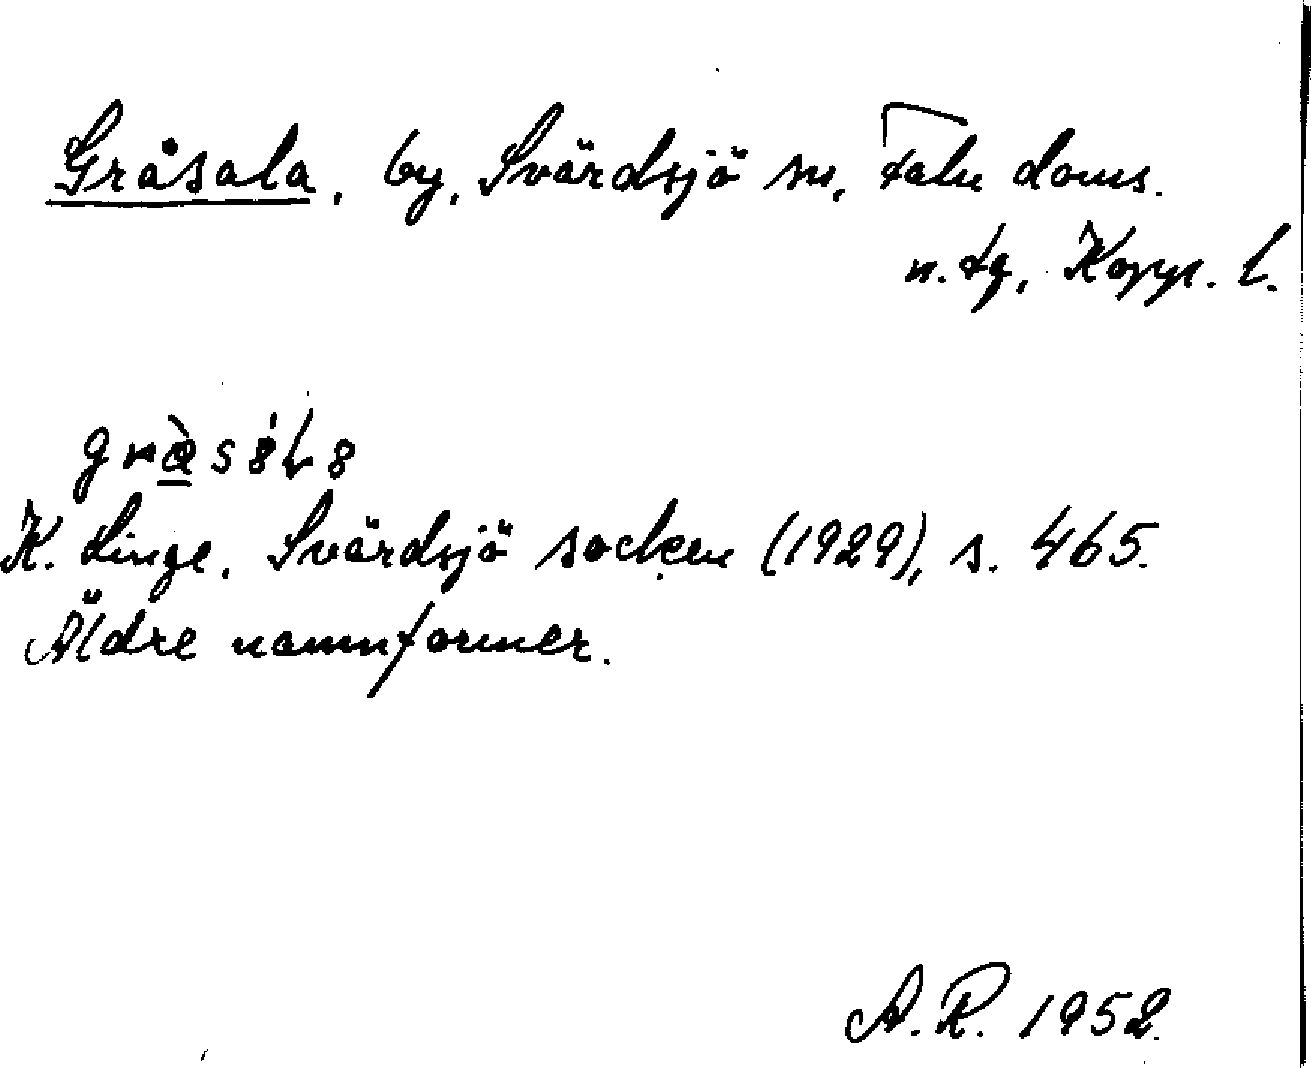 Gråsala, by, Svärdsjö sn, Falu doms.
n. tg, Kopp. l.
K. Linge, Svärdsjö socken (1929), s. 465.
Äldre namnformer.
A.R. 1952.